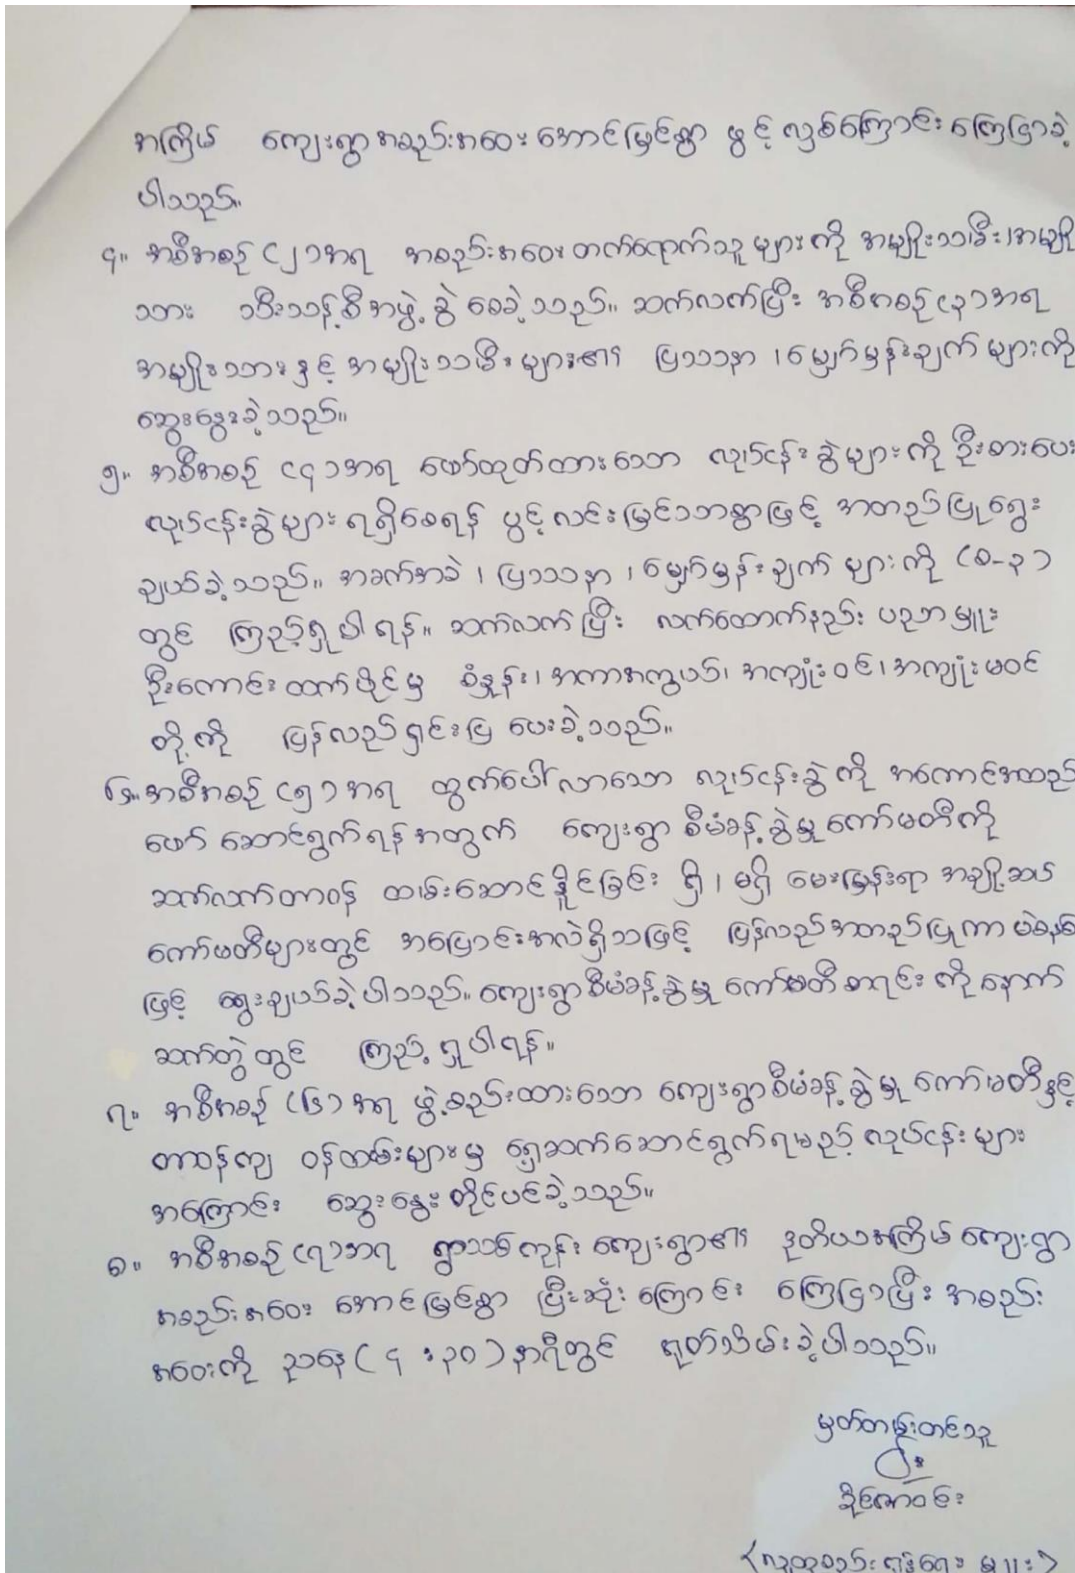 အကြိမ် ကျေးရွာအစည်းအဝေးအောင်မြင်စွာ ဖွင့်လှစ်ကြောင်းကြေငြာခဲ့
ပါသည်။
၄။ အစီအစဉ် (၂)အရ အစည်းအဝေးတက်ရောက်သူများကို အမျိုးသမီး၊အမျိုး
သား သီးသန့်စီအဖွဲ့ခွဲစေခဲ့သည်။ ဆက်လက်ပြီး အစီအစဉ်(၃)အရ
အမျိုးသားနှင့် အမျိုးသမီးများ၏ ပြဿနာ၊မျှော်မှန်းချက်များကို
ဆွေးနွေးခဲ့သည်။
၅။ အစီအစဉ် (၄)အရ ဖော်ထုတ်ထားသော လုပ်ငန်းခွဲများကို ဦးစားပေး
လုပ်ငန်းခွဲများရရှိစေရန် ပွင့်လင်းမြင်သာစွာဖြင့် အတည်ပြုရွေး
ချယ်ခဲ့သည်။ အခက်အခဲ၊ ပြဿနာ၊မျှော်မှန်းချက်များကို (စ-၃)
တွင် ကြည့်ရှုပါရန်။ ဆက်လက်ပြီး လက်ထောက်နည်းပညာမှူး
ဦးကောင်းထက်ပိုင်မှ စံနှုန်း၊အကာအကွယ်၊ အကျုံးဝင်၊အကျုံးမဝင်
တို့ကို ပြန်လည်ရှင်းပြပေးခဲ့သည်။
၆။ အစီအစဉ် (၅)အရ ထွက်ပေါ်လာသော လုပ်ငန်းခွဲကို အကောင်အထည်
ဖော်ဆောင်ရွက်ရန်အတွက် ကျေးရွာစီမံခန့်ခွဲမှုကော်မတီကို
ဆက်လက်တာဝန် ထမ်းဆောင်နိုင်ခြင်း ရှိ၊မရှိ မေးမြန်းရာ အချို့သော
ကော်မတီများတွင် အပြောင်းအလဲရှိသဖြင့် ပြန်လည်အတည်ပြုကာ မဲစနစ်
ဖြင့် ရွေးချယ်ခဲ့ပါသည်။ ကျေးရွာစီမံခန့်ခွဲမှုကော်မတီစာရင်းကို နောက်
ဆက်တွဲတွင် ကြည့်ရှုပါရန်။
၇။ အစီအစဉ် (၆)အရ ဖွဲ့စည်းထားသော ကျေးရွာစီမံခန့်ခွဲမှုကော်မတီနှင့်
တာဝန်ကျ ဝန်ထမ်းများမှ ရှေ့ဆက်ဆောင်ရွက်ရမည့်လုပ်ငန်းများ
အကြောင်း ဆွေးနွေးတိုင်ပင်ခဲ့သည်။
၈။ အစီအစဉ် (၇)အရ ရွာသစ်ကုန်းကျေးရွာ၏ ဒုတိယအကြိမ်ကျေးရွာ
အစည်းအဝေး အောင်မြင်စွာ ပြီးဆုံးကြောင်း ကြေငြာပြီး အစည်း
အဝေးကို ညနေ(၄:၃၀)နာရီတွင် ရုတ်သိမ်းခဲ့ပါသည်။
မှတ်တမ်းတင်သူ
ခိုင်ဇာဝင်း